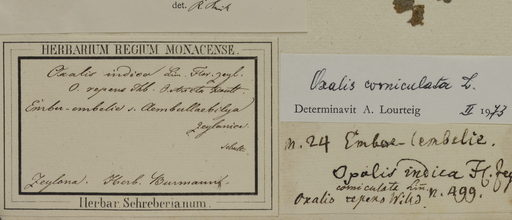 det.
HERBARIUM REGIUM MONACENSE.
Oxalis indica Lin. Flor. zeyl.
O. repens Thb.
Embu-embelie s. Aembullaebilya
Zeylanice
Schult.
Zeylona. Herb. Burmann.
Herbar. Schreberianum.
Oxalis corniculata L.
Determinavit A. Lourteig II 1973
n. 24 Embu-Embelie.
Oxalis indica Fl. zey
corniculata Lin. n. 499.
Oxalis repens Willd.